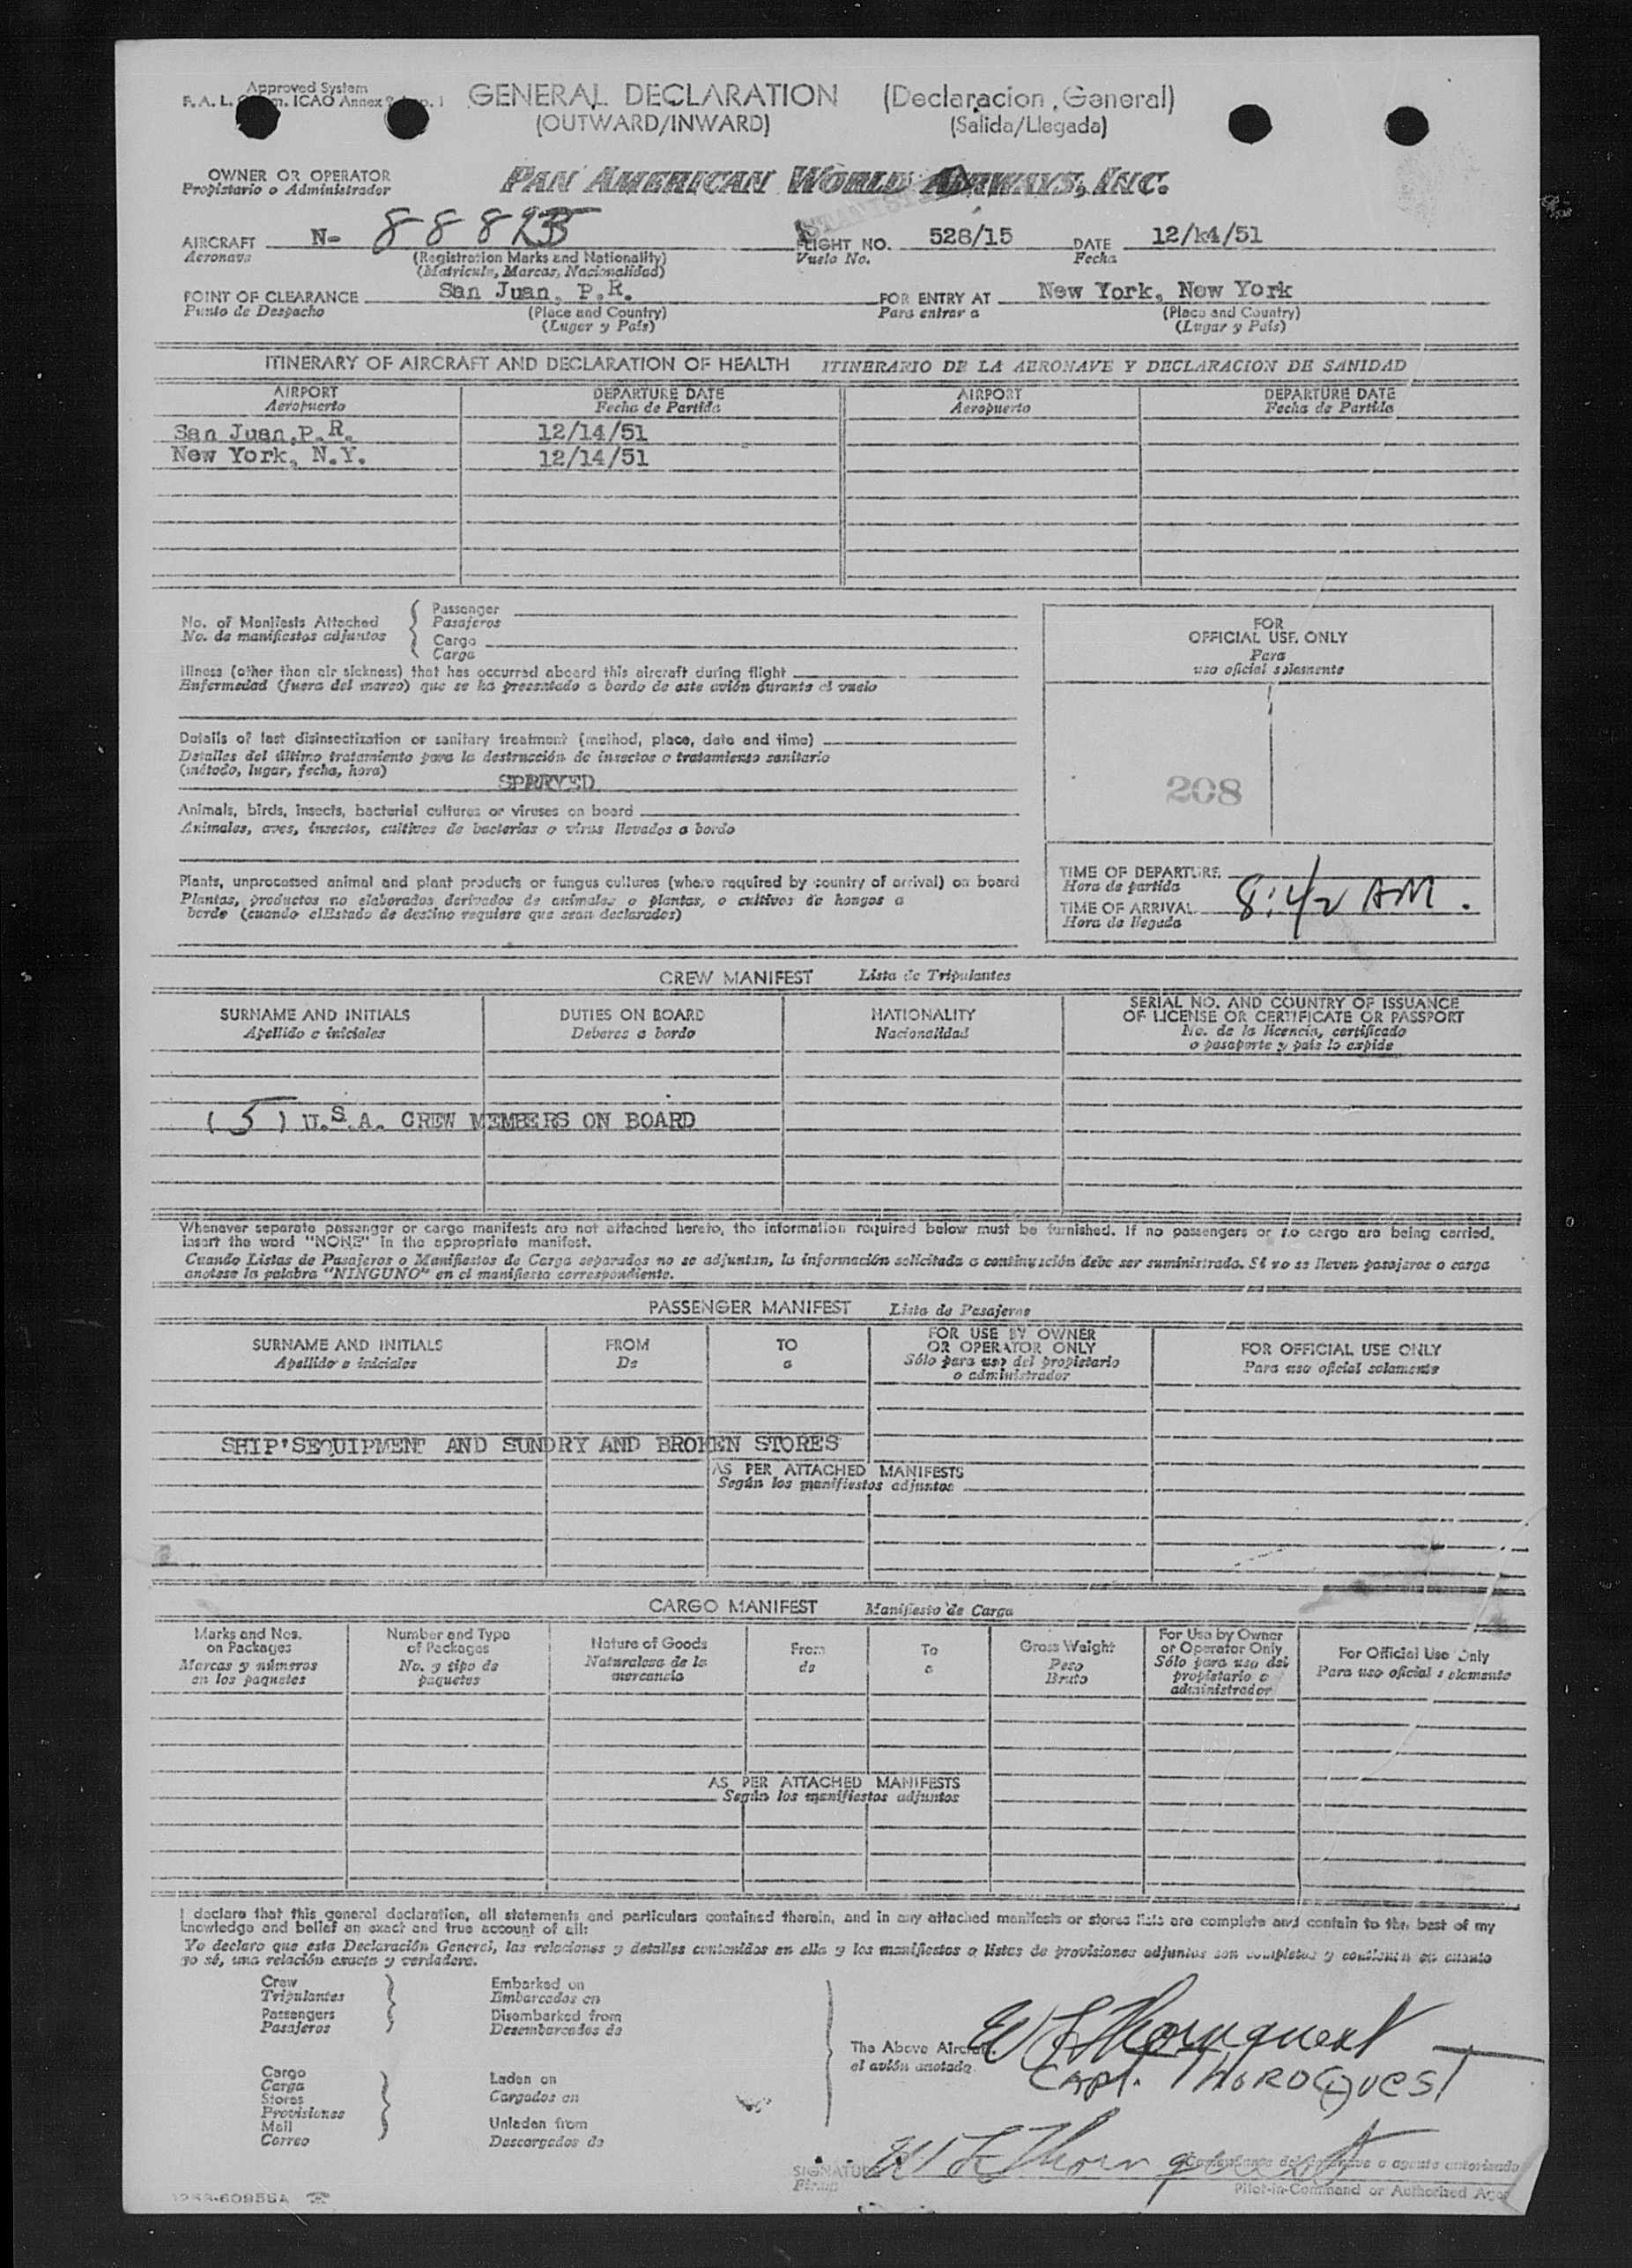 Approved System
GENERAL DECLARATION (Declaracion General)
(OUTWARD/INWARD) (Salida/Llegada)
OWNER OR OPERATOR
Propietario o Administrador
PAN AMERICAN WORLD AIRWAYS, INC.
AIRCRAFT N- FLIGHT NO. 528/15 DATE 12/k4/51
Aeronave (Registration Marks and Nationality) Vuelo No. Fecha
(Matricula, Marcas, Nacionalidad)
POINT OF CLEARANCE San Juan, P.R. FOR ENTRY AT New York, New York
Punto de Despacho (Place and Country) Para entrar a (Place and Country)
(Lugar y País) (Lugar y País)
ITINERARY OF AIRCRAFT AND DECLARATION OF HEALTH ITINERARIO DE LA AERONAVE Y DECLARACION DE SANIDAD
AIRPORT DEPARTURE DATE AIRPORT DEPARTURE DATE
Aeropuerto Fecha de Partida Aeropuerto Fecha de Partida
San Juan,P.R. 12/14/51
New York, N.Y. 12/14/51
No. of Manifests Attached
No. de manifiestos adjuntos
Passenger
Pasajeros
Cargo
Carga
FOR
OFFICIAL USE ONLY
Para
uso oficial solamente
Illness (other than air sickness) that has occurred aboard this aircraft during flight
Enfermedad (fuera del mareo) que se ha presentado a bordo de este avión durante el vuelo
Details of last disinsectization or sanitary treatment (method, place, date and time)
Detalles del último tratamiento para la destrucción de insectos o tratamiento sanitario
(método, lugar, fecha, hora)
SPRAYED
208
Animals, birds, insects, bacterial cultures or viruses on board
Animales, aves, insectos, cultivos de bacterias o virus llevados a bordo
Plants, unprocessed animal and plant products or fungus cultures (where required by country of arrival) on board
Plantas, productos no elaborados derivados de animales o plantas, o cultivos de hongos a
bordo (cuando elEstado de destino requiere que sean declarados)
TIME OF DEPARTURE
Hora de partida
TIME OF ARRIVAL 8:42 AM.
Hora de llegada
CREW MANIFEST Lista de Tripulantes
SURNAME AND INITIALS DUTIES ON BOARD NATIONALITY SERIAL NO. AND COUNTRY OF ISSUANCE
Apellido e iniciales Deberes a bordo Nacionalidad OF LICENSE OR CERTIFICATE OR PASSPORT
No. de la licencia, certificado
o pasaporte y país lo expide
(5) U.S.A. CREW MEMBERS ON BOARD
Whenever separate passenger or cargo manifests are not attached hereto, the information required below must be furnished. If no passengers or no cargo are being carried,
insert the word "NONE" in the appropriate manifest.
Cuando Listas de Pasajeros o Manifiestos de Carga separados no se adjuntan, la información solicitada a continuación debe ser suministrada. Si no se lleven pasajeros o carga
anotese la palabra "NINGUNO" en el manifiesto correspondiente.
PASSENGER MANIFEST Lista de Pasajeros
SURNAME AND INITIALS FROM TO FOR USE BY OWNER FOR OFFICIAL USE ONLY
Apellido e iniciales De a OR OPERATOR ONLY Para uso oficial solamente
Sólo para uso del propietario
o administrador
SHIP'SEQUIPMENT AND SUNDRY AND BROKEN STORES
AS PER ATTACHED MANIFESTS
Según los manifiestos adjuntos
CARGO MANIFEST Manifiesto de Carga
Marks and Nos.
on Packages
Marcas y números
en los paquetes
Number and Type
of Packages
No. y tipo de
paquetes
Nature of Goods
Naturaleza de la
mercancia
From
de
To
a
Gross Weight
Peso
Bruto
For Use by Owner
or Operator Only
Sólo para uso del
propietario o
administrador
For Official Use Only
Para uso oficial solamente
AS PER ATTACHED MANIFESTS
Según los manifiestos adjuntos
I declare that this general declaration, all statements and particulars contained therein, and in any attached manifests or stores lists are complete and contain to the best of my
knowledge and belief an exact and true account of all:
Yo declaro que esta Declaración General, las relaciones y detalles contenidos en ella y los manifiestos o listas de provisiones adjuntos son completos y contienen en cuanto
yo sé, una relación exacta y verdadera.
Crew
Tripulantes
Passengers
Pasajeros
Embarked on
Embarcados en
Disembarked from
Desembarcados de
Cargo
Carga
Stores
Provisiones
Mail
Correo
Laden on
Cargados en
Unladen from
Descargados de
The Above Aircraft
el avión anotado
Capt.
SIGNATURE
Firma
Pilot-in-Command or Authorized Agent